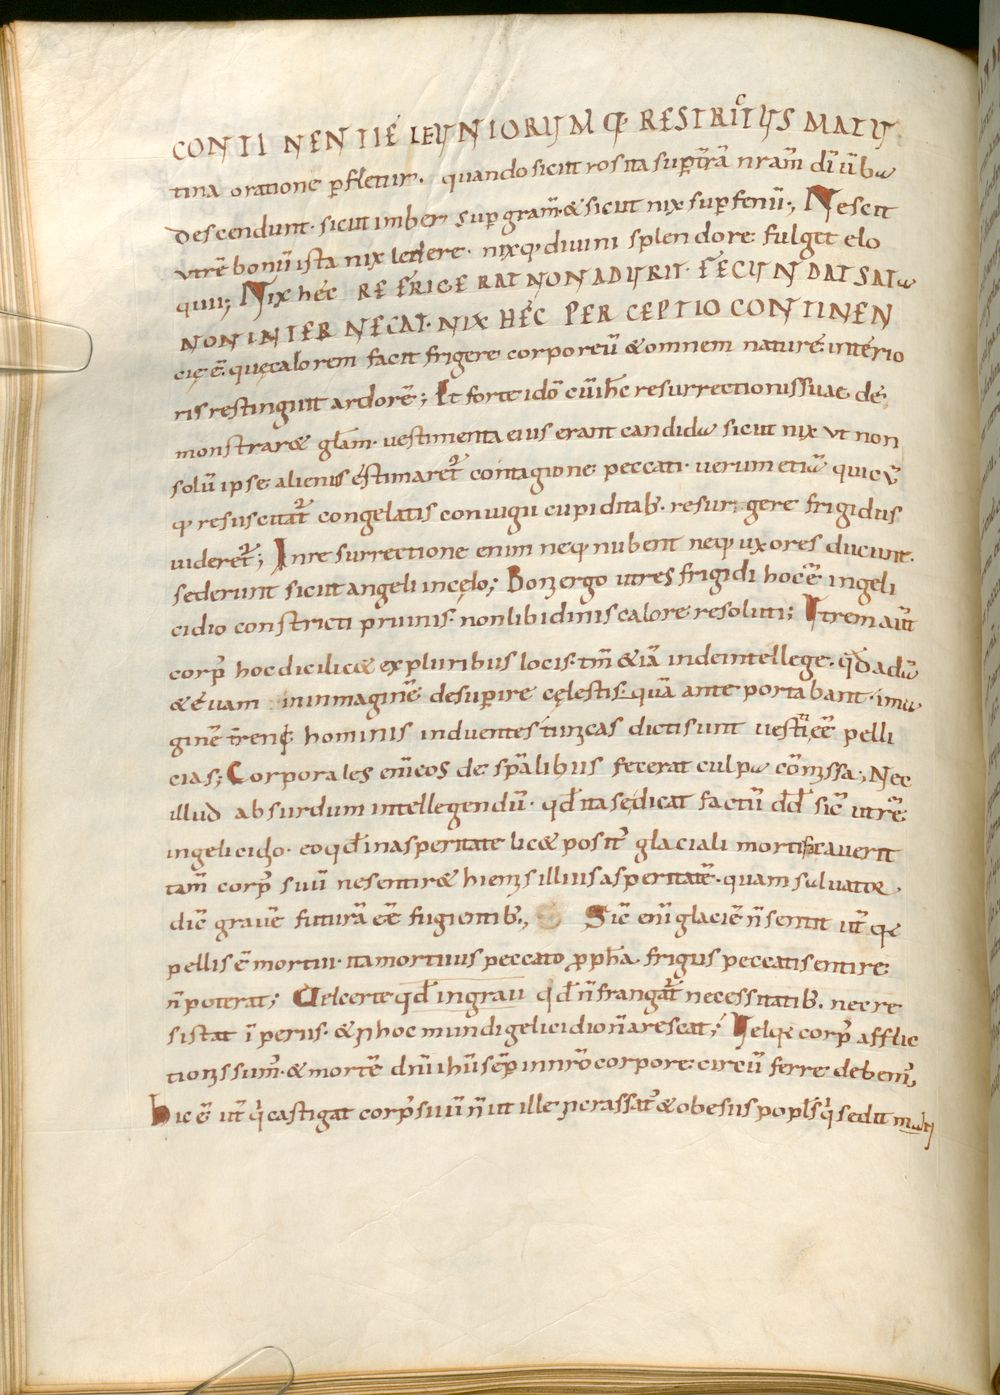 CONTINENTIĘ IEIUNIORUM Q; RESTRICTUS MATU
tina oratione ꝑfletur. quando sicut ros ita sup̱ t̄rā nr̄am dī ūba
descendunt. sicut imber sup̱ gram̄. & sicut nix sup̱ fenū; Nescit
utrē bonū ista nix ledere. nixq; divini splendore fulget elo
quii; Nix hęc REFRIGERAT NON ADURIT. FECUNDAT SATA
NON INTERNECAT. NIX HĘC PERCEPTIO CONTINEN
cię ē. quę calorem facit frigere corporeū & omnem naturę interio
ris restinguit ardorē; Et forte idō cū ih̄c resurrectionis suae de
monstrar& gl̄am. vestimenta eius erant candida sicut nix ut non
solū ipse alienus ęstimaret᷑ contagione peccati. verum etiā quicū
q; resuscitat᷑ congelatis coniugii cupiditatib;. resurgere frigidus
uideret᷑; In resurrectione enim neq; nubent neq; uxores ducunt.
sed erunt sicut angeli in cęlo; Boni ergo utres frigidi hoc ē in geli
cidio constricti pruinis. non libidinis calore resoluti; Utrem aūt
corp᷑ hoc dici lic& ex pluribus locis. tm̄ & iā inde intellege. qd̄ adā
& ęuam in imaginē desup̱ire cęlestis. quā ante portabant. ima
ginē t̄reni hominis induentes tunicas dicti sunt vestiti eē pelli
cias; Corporales enī eos de sp̄alibus fecerat culpa cōmissa; Nec
illud absurdum intellegendū. qd̄ ita se dicat factū dd̄ sic̄ utrē
in gelicidio. eo qd̄ in asperitate lic& posit᷑ glaciali mortificaverit
tam̄ corp᷑ suū ne sentir& hiemis illius asperitatē. quam saluator
dic̄ gravē futurā eē fugientib;., Sic̄ enī glaciē n̄ sentit ut᷑ q;
pellis ē mortui. ita mortuus peccato ꝓph̄a frigus peccati sentire
n̄ poterat; Vel certe qd̄ in grau qd̄ n̄ frangat᷑ necessitatib;. nec re
sistat īperus. & ꝑ hoc mundi gelicidio n̄ arescat; Velq; corp᷑ afflic
tionis sum᷑. & mortē dn̄i ih̄u sēp in nr̄o corpore circū ferre debem᷑,
hic ē ut᷑ q̄ castigat corp᷑ suū n̄ ut ille incrassat᷑ & obesus popl̄s q̄ sedit mādu